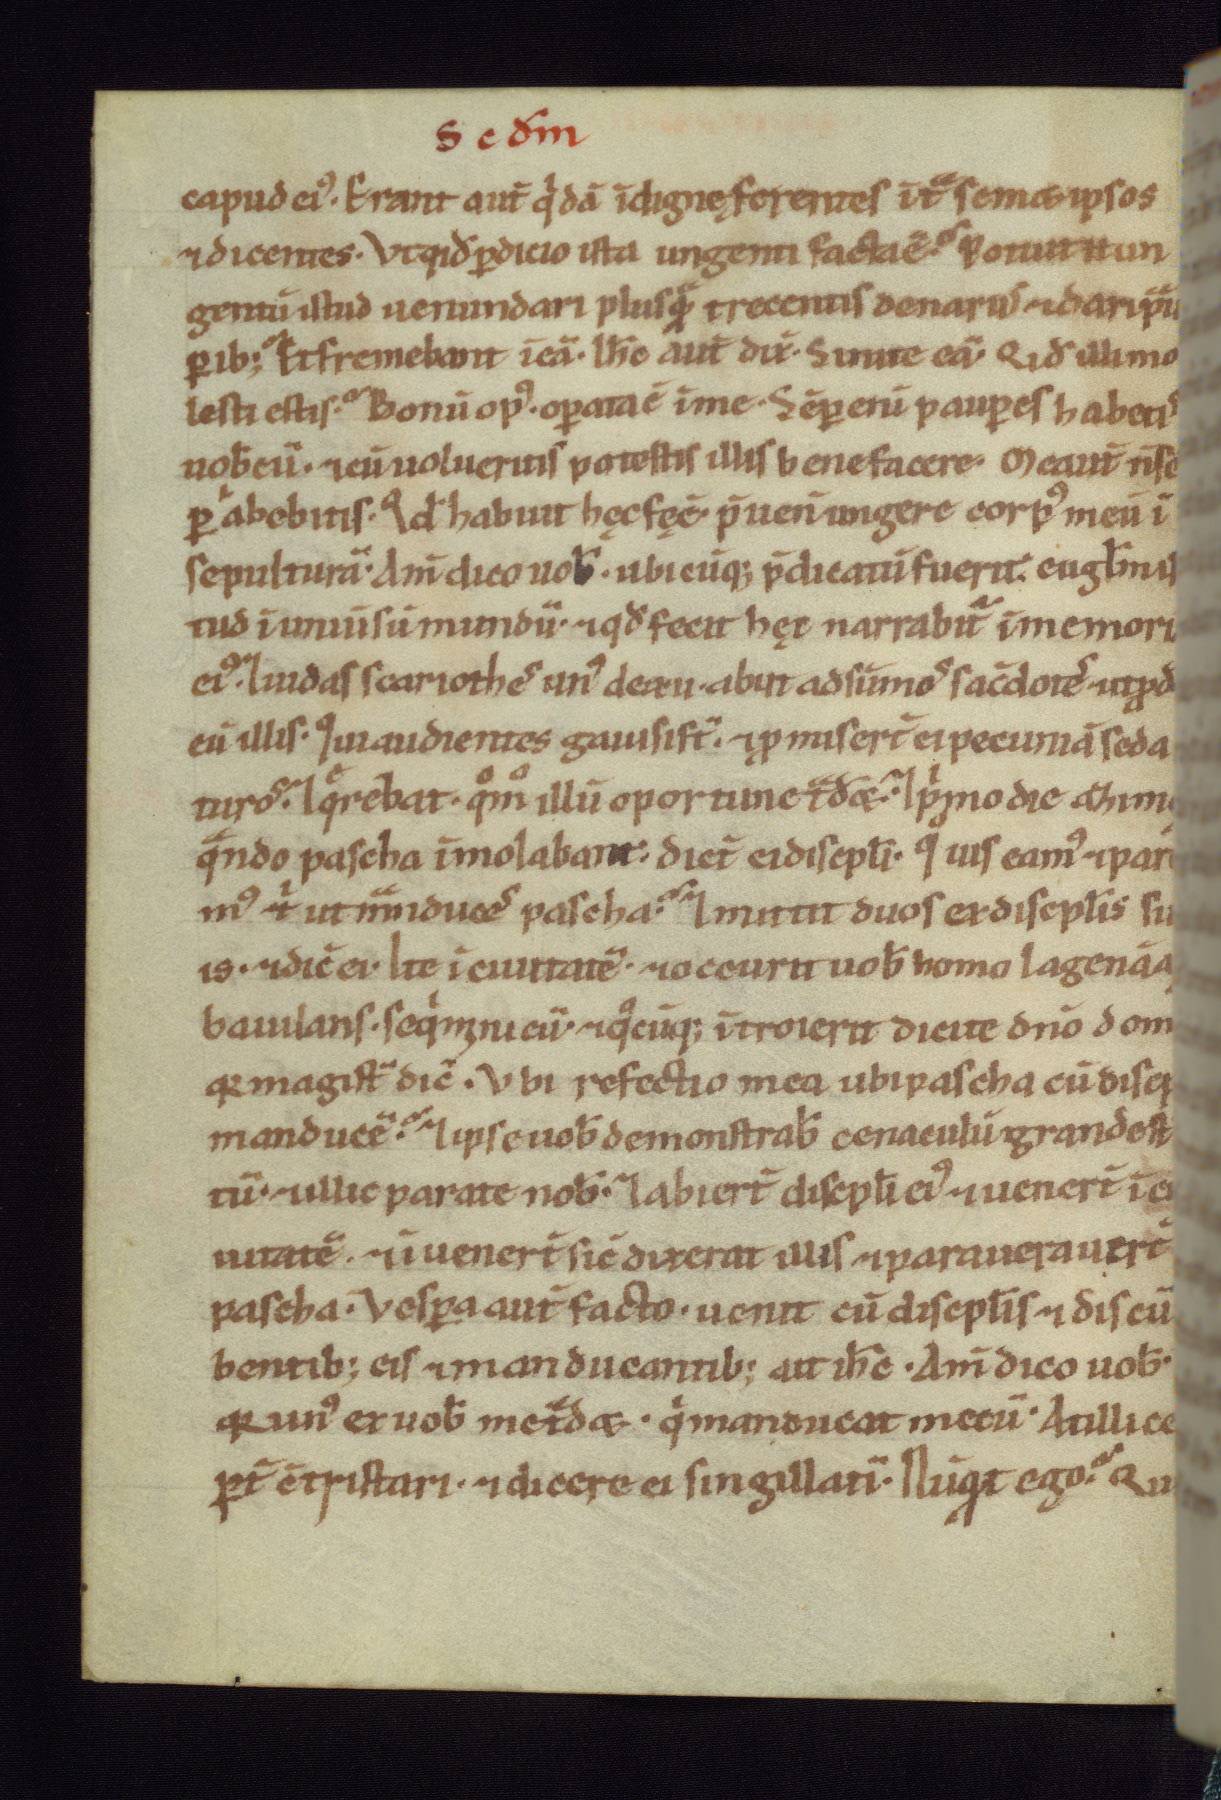 Scdm
capud ei᾽. Erant aut̄ q̇dā īdignę ferentes īt̄ semet ipsos
⁊ dicentes. Vt qid ꝑdicio ista ungenti facta ē. Potuit īt un
gentū istud uenundari plusquā trecentis denariis ⁊ dari pau
ꝑib; Et fremebant ī eā. Ihc aut̄ dix̄. Sinite eā. Qid illi mo
lesti estis. Bonū op᾽. oꝑata ē ī me. Sēꝑ enī pauꝑes habetis
uob̄cū. ⁊ cū uolueritis potestis illis bene facere. Me aut̄ n̄ sē
ꝑ abebitis. Qd̄ habuit hęc fęc̄. p̄uen̄ ungere corp᾽ meū ī
sepulturā. Am̄ dico uob̄. ubicūq; p̄dicatū fuerit. eugl̄m is
tud ī uniūsū mundū. ⁊ qd̄ fecit hęc narrabit᾽ ī memori
ei᾽. Iudas scariothes un᾽ de xii. abiit ad sūmos sac̄dotes ut ꝓd
eū illis. Qui audientes gauisi st̄. ⁊ ꝓmisert̄ ei pecuniā se da
turos. I q̄rebat. qm̊ illū oportune t̄det. I ṗmo die azimo
qando pascha īmolabant. dict̄ ei discipl̄i. Q uis eam᾽ ⁊ par
m᾽ t᾽ ut manduces pascha. I mittit duos ex discipl̄is su
is. ⁊ dic̄ ei. Ite ī ciuitatē. ⁊ occurit uob̄ homo lagenā a
baiulans. seqimini eū. ⁊ qcūq; ītroierit dicite dn̄o dom
qr magist̄ dic̄. Vbi refectio mea ubi pascha cū discip
manducē. I ipse uob̄ demonstrab̄ cenaculū grande st
tū. ⁊ illic parate nob̄. I abiert̄ discipl̄i ei᾽ ⁊ uenert̄ ī ci
uitatē. ⁊ īuenert̄ sic̄ dixerat illis ⁊ parauerauert̄
pascha. Vesꝑa aut̄ facto. uenit cū discipl̄is ⁊ discū
bentib; eis ⁊ manducantib; ait ihc̄. Am̄ dico uob̄.
qr un᾽ ex uob̄ me t̄det. q̇ manducat mecū. At illi ce
ꝑt̄ c̄tristari. ⁊ dicere ei singillatī. Nūqit ego. Qui